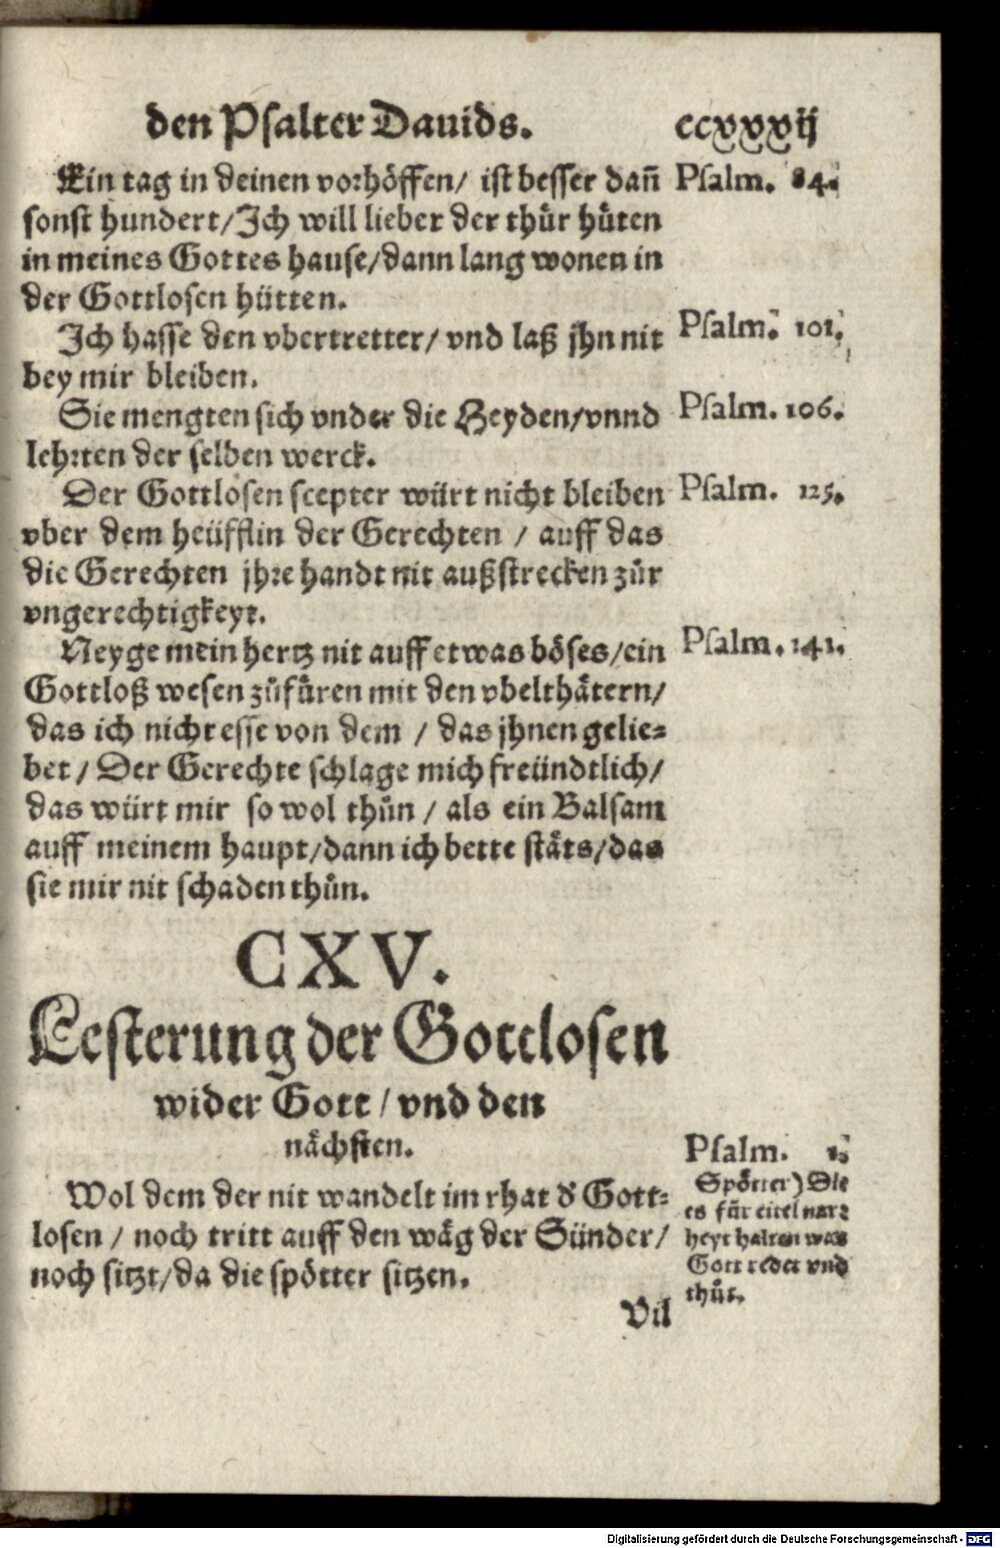 den Psalter Dauids. ccxxxij
Ein tag in deinen vorhöffen/ ist besser dañ Psalm. 84.
sonst hundert/Ich will lieber der thür hüten
in meines Gottes hause/dann lang wonen in
der Gottlosen hütten.
Ich hasse den vbertretter/ vnd laß jhn nit Psalm. 101.
bey mir bleiben.
Sie mengten sich vnder die Heyden/vnnd Psalm. 106.
lehrten der selben werck.
Der Gottlosen scepter würt nicht bleiben Psalm. 125.
vber dem heüfflin der Gerechten / auff das
die Gerechten jhre handt nit außstrecken zůr
vngerechtigkeyt.
Neyge mein hertz nit auff etwas böses/ein Psalm. 141.
Gottloß wesen zůfüren mit den vbelthätern/
das ich nicht esse von dem / das jhnen gelie=
bet / Der Gerechte schlage mich freündtlich/
das würt mir so wol thůn / als ein Balsam
auff meinem haupt/dann ich bette stäts/das
sie mir nit schaden thůn.
CXV.
Lesterung der Gottlosen
wider Gott / vnd den
nächsten.
Wol dem der nit wandelt im rhat d' Gott=
losen / noch tritt auff den wäg der Sünder/
noch sitzt/da die spötter sitzen.
Psalm. 1.
Spötter) Die
es für eitel nar=
heyt halten was
Gott redet vnd
thůt.
Vil
Digitalisierung gefördert durch die Deutsche Forschungsgemeinschaft - DFG